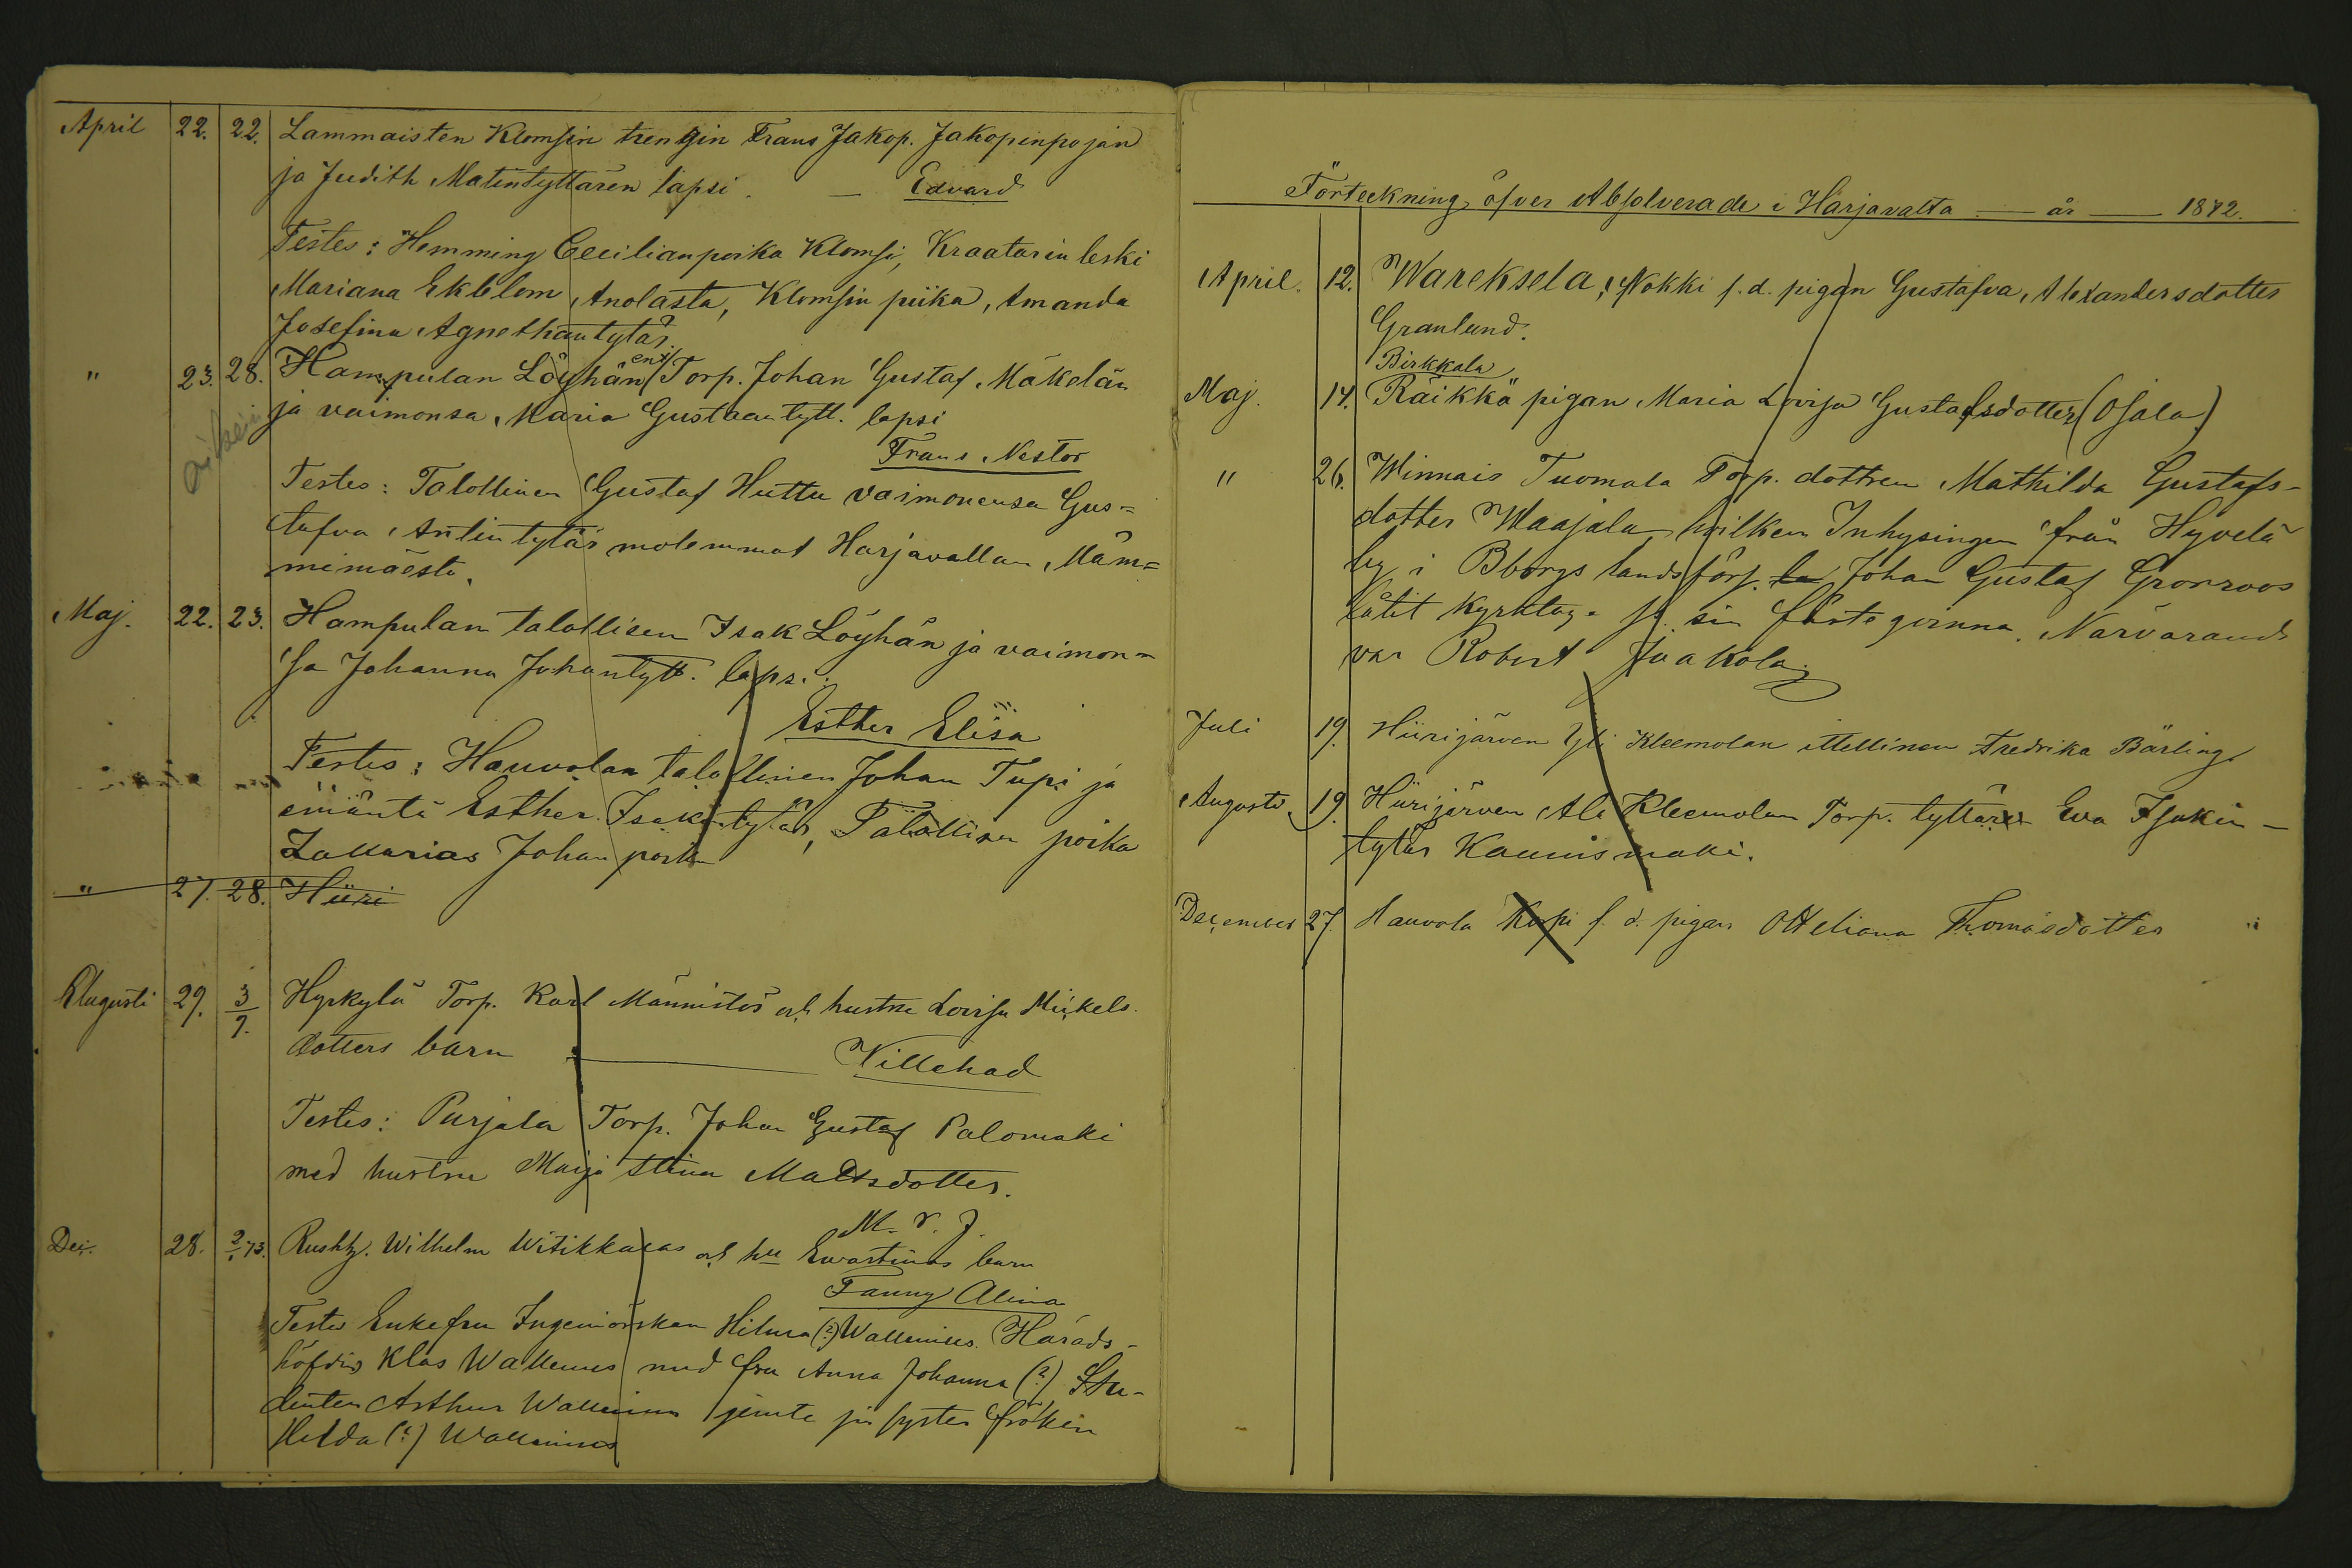 April 22. 22. Lammaisten Klomsin trengin Frans Jakop. Jakopinpojan
ja Judith Matintyttären lapsi. — Edvard
Testes: Hemming Cecilianpoika Klomsi, Kraatarin leski
Mariana Ekblom Anolasta, Klomsin piika, Amanda
Josefina Agnethantytär
" 23. 28. Hampulan Löyhän ent. Torp. Johan Gustaf Mäkelän
ja vaimonsa Maria Gustaantytt. lapsi
Frans Nestor
Testes: Talollinen Gustaf Huttu vaimonensa Gus=
tafva Antintytär molemmat Harjavallan Mäm=
mimäestä.
Maj. 22. 23. Hampulan talollisen Isak Löyhän ja vaimon=
sa Johanna Juhantytt. lapsi.
Esther Elisa
Testes: Hauvolan talollinen Johan Tupi ja
emäntä Esther Isakintytär, Talollisen poika
Zakarias Johan poika
" 27. 28. Hiiri
Augusti 29. 3/9. Hyrkylä Torp. Karl Männistös och hustru Lovisa Mickels
dotters barn — Villehad
Testes: Purjala Torp. Johan Gustaf Palomäki
med hustru Maja Stina Mattsdotter.
M. v. J.
Dec. 28. 2/1 73. Rusth. Wilhelm Witikkalas och hu Evastinas barn
Fanny Alina
Testes Enkefru Ingeniörskan Hilma (?) Wallenius. Härads-
höfding Klas Wallenius med fru Anna Johanna (?) Stu-
denten Arthur Wallenius jemte sin syster fröken
Helda (?) Wallenius
Förteckning öfver Absolverade i Harjavalta — år — 1872.
April. 12. Wareksela, Nokki f.d. pigan Gustafva Alexandersdotter
Granlund.
Birkkala
Maj. 14. Räikkä pigan Maria Lovisa Gustafsdotter (Ojala)
" 26. Winnais Tuomola Torp. dottren Mathilda Gustafs-
dotter Waajala hvilken Inhysingen från Hyvelä
by i Bborgs landsförs. Johan Gustaf Gronroos
låtit kyrktaga sin fästeqvinna. Närvarande
var Robert Jaakola
Juli 19. Hiirijärven Yli Kleemolan ittellinen Fredrika Bärling
Augusti 19. Hiirijärven Ala Kleemolan Torp. tyttären Eva Isakin-
tytär Kaunismäki.
December 27. Hauvola Kupi f.d. pigan Otteliana Thomasdotter